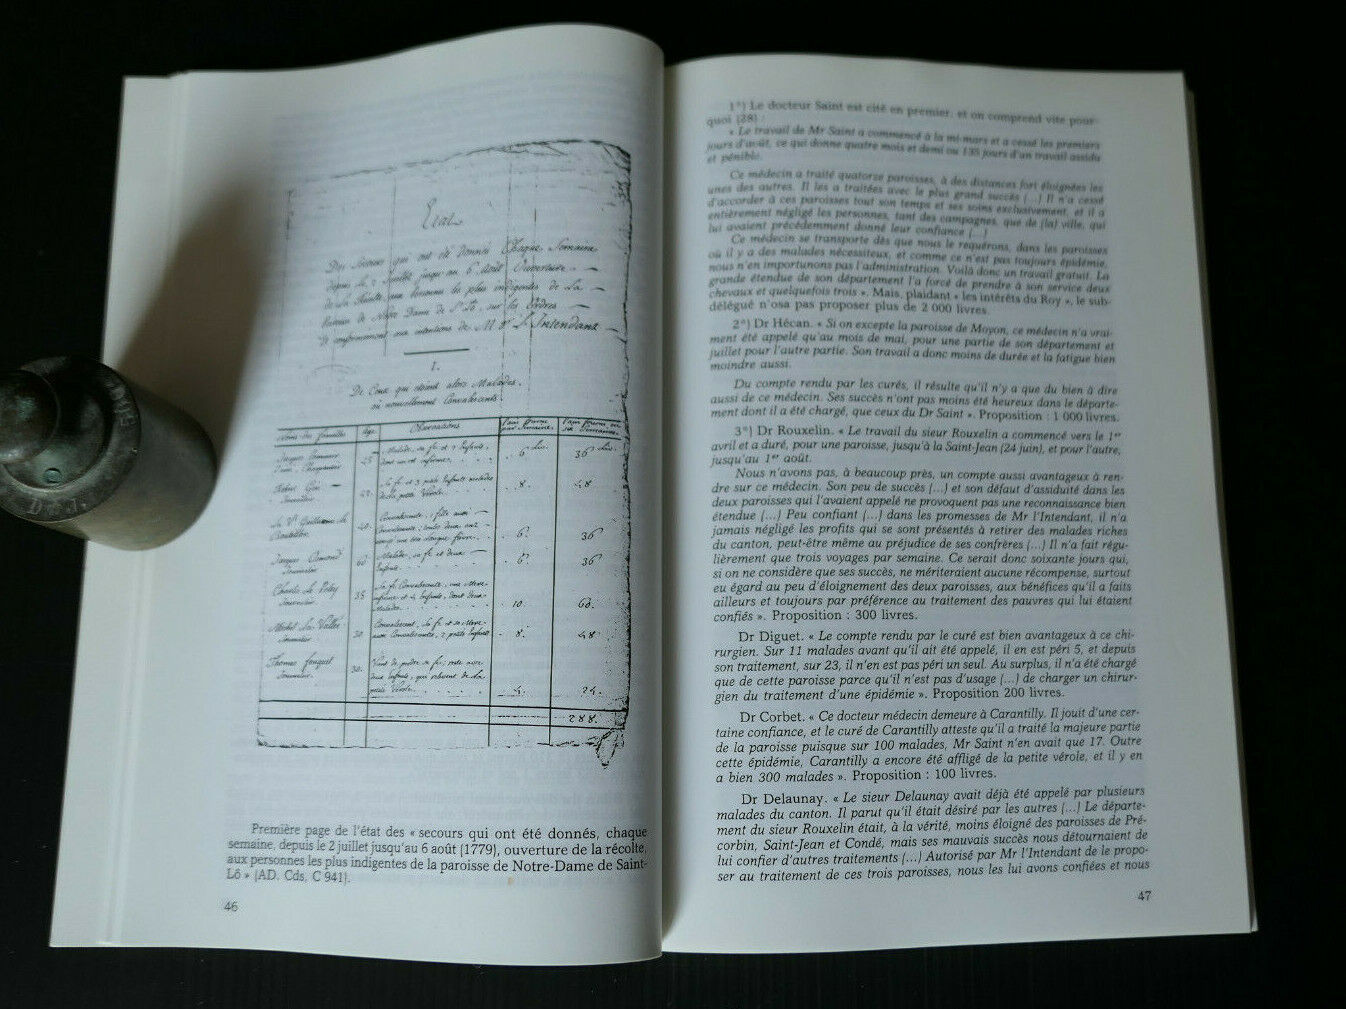 Etat
Des Secours qui ont été donnés Chaque Semaine
depuis le 2 Juillet jusqu'au 6 Août Ouverture
de la Récolte, aux personnes les plus indigentes de La
Paroisse de Notre Dame de St Lô, sur les Ordres
Et conformément aux intentions de M. L'Intendant
1.
De Ceux qui étaient alors Malades,
ou nouvellement Convalescents.
Noms des familles Age Observations
25 6 36
8. 48
40. 6. 36
60 6. 36
35 10. 60.
30 8. 48
Thomas fouquet 30. 4. 24.
288.
Première page de l'état des « secours qui ont été donnés, chaque
semaine, depuis le 2 juillet jusqu'au 6 août (1779), ouverture de la récolte,
aux personnes les plus indigentes de la paroisse de Notre-Dame de Saint-
Lô » (AD. Cds, C 941).
46
1°) Le docteur Saint est cité en premier, et on comprend vite pour-
quoi (28) :
« Le travail de Mr Saint a commencé à la mi-mars et a cessé les premiers
jours d'août, ce qui donne quatre mois et demi ou 135 jours d'un travail assidu
et pénible.
Ce médecin a traité quatorze paroisses, à des distances fort éloignées les
unes des autres. Il les a traitées avec le plus grand succès (...) Il n'a cessé
d'accorder à ces paroisses tout son temps et ses soins exclusivement, et il a
entièrement négligé les personnes, tant des campagnes, que de (la) ville, qui
lui avaient précédemment donné leur confiance (...)
Ce médecin se transporte dès que nous le requérons, dans les paroisses
où il y a des malades nécessiteux, et comme ce n'est pas toujours épidémie,
nous n'en importunons pas l'administration. Voilà donc un travail gratuit. La
grande étendue de son département l'a forcé de prendre à son service deux
chevaux et quelquefois trois ». Mais, plaidant « les intérêts du Roy », le sub-
délégué n'osa pas proposer plus de 2 000 livres.
2°) Dr Hécan. « Si on excepte la paroisse de Moyon, ce médecin n'a vrai-
ment été appelé qu'au mois de mai, pour une partie de son département et
juillet pour l'autre partie. Son travail a donc moins de durée et la fatigue bien
moindre aussi.
Du compte rendu par les curés, il résulte qu'il n'y a que du bien à dire
aussi de ce médecin. Ses succès n'ont pas moins été heureux dans le départe-
ment dont il a été chargé, que ceux du Dr Saint ». Proposition : 1 000 livres.
3°) Dr Rouxelin. « Le travail du sieur Rouxelin a commencé vers le 1er
avril et a duré, pour une paroisse, jusqu'à la Saint-Jean (24 juin), et pour l'autre,
jusqu'au 1er août.
Nous n'avons pas, à beaucoup près, un compte aussi avantageux à ren-
dre sur ce médecin. Son peu de succès (...) et son défaut d'assiduité dans les
deux paroisses qui l'avaient appelé ne provoquent pas une reconnaissance bien
étendue (...) Peu confiant (...) dans les promesses de Mr l'Intendant, il n'a
jamais négligé les profits qui se sont présentés à retirer des malades riches
du canton, peut-être même au préjudice de ses confrères (...) Il n'a fait régu-
lièrement que trois voyages par semaine. Ce serait donc soixante jours qui,
si on ne considère que ses succès, ne mériteraient aucune récompense, surtout
eu égard au peu d'éloignement des deux paroisses, aux bénéfices qu'il a faits
ailleurs et toujours par préférence au traitement des pauvres qui lui étaient
confiés ». Proposition : 300 livres.
Dr Diguet. « Le compte rendu par le curé est bien avantageux à ce chi-
rurgien. Sur 11 malades avant qu'il ait été appelé, il en est péri 5, et depuis
son traitement, sur 23, il n'en est pas péri un seul. Au surplus, il n'a été chargé
que de cette paroisse parce qu'il n'est pas d'usage (...) de charger un chirur-
gien du traitement d'une épidémie ». Proposition 200 livres.
Dr Corbet. « Ce docteur médecin demeure à Carantilly. Il jouit d'une cer-
taine confiance, et le curé de Carantilly atteste qu'il a traité la majeure partie
de la paroisse puisque sur 100 malades, Mr Saint n'en avait que 17. Outre
cette épidémie, Carantilly a encore été affligé de la petite vérole, et il y en
a bien 300 malades ». Proposition : 100 livres.
Dr Delaunay. « Le sieur Delaunay avait déjà été appelé par plusieurs
malades du canton. Il parut qu'il était désiré par les autres (...) Le départe-
ment du sieur Rouxelin était, à la vérité, moins éloigné des paroisses de Pré-
corbin, Saint-Jean et Condé, mais ses mauvais succès nous détournaient de
lui confier d'autres traitements (...) Autorisé par Mr l'Intendant de le propo-
ser au traitement de ces trois paroisses, nous les lui avons confiées et nous
47